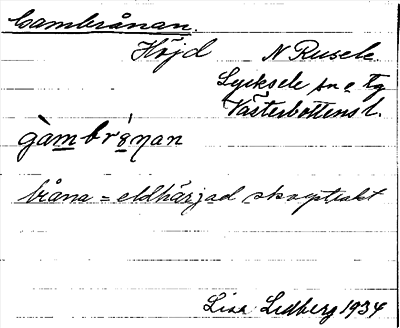 Gambrånan.
Höjd N Rusele.
Lycksele sn o tg
Västerbottens l.
gàmbrånan
bråna = eldhärjad skogstrakt
Lisa Lidberg 1934